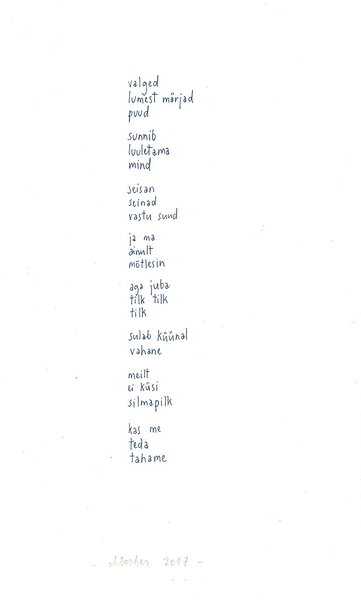 valged
lumest märjad
puud
sunnib
luuletama
mind
seisan
seinad
vastu suud
ja ma
ainult
mõtlesin
aga juba
tilk tilk
tilk
sulab küünal
vahane
meilt
ei küsi
silmapilk
kas me
teda
tahame
- oktoober 2017 -